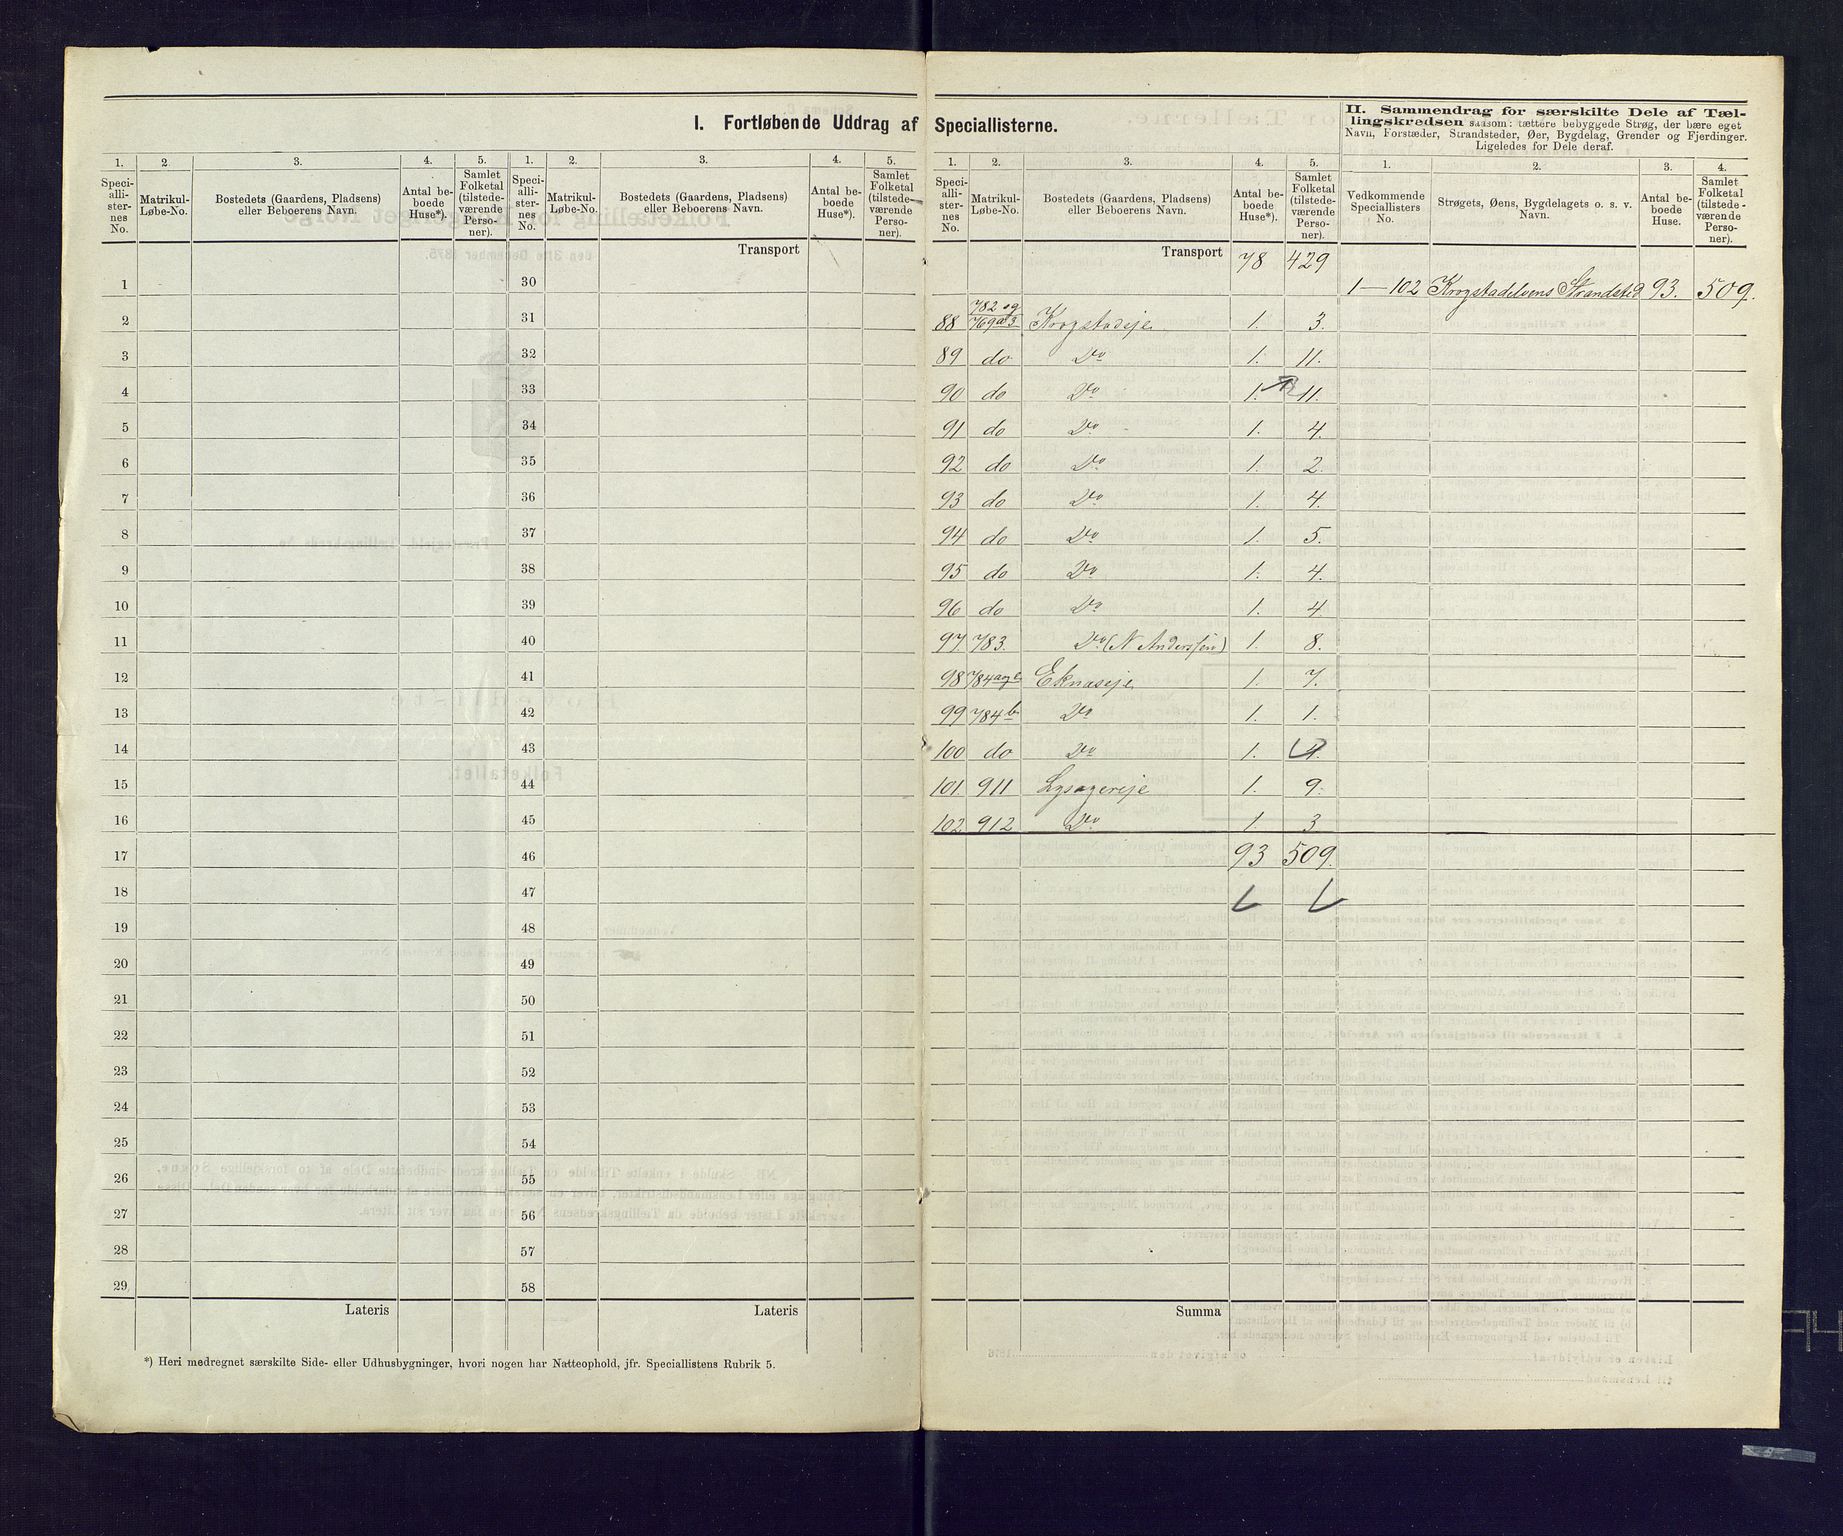 I. Fortløbende Uddrag af Speciallisterne.
II. Sammendrag for særskilte Dele af Tæl-
lingskredsen saasom: tættere bebyggede Strøg, der bære eget
Navn, Forstæder, Strandsteder, Øer, Bygdelag, Grender og Fjerdinger.
Ligeledes for Dele deraf.
1. 2. 3. 4. 5. 1. 2. 3. 4. 5.
Speci-allister-nes No. Matrikul-Løbe-No. Bostedets (Gaardens, Pladsens) eller Beboerens Navn. Antal be-boede Huse*). Samlet Folketal (tilstede-værende Perso-ner). Speci-alli-ster-nes No. Matrikul-Løbe-No. Bostedets (Gaardens, Pladsens) eller Beboerens Navn. Antal be-boede Huse*). Samlet Folketal (tilstede-værende Perso-ner).
Transport
1 30
2 31
3 32
4 33
5 34
6 35
7 36
8 37
9 38
10 39
11 40
12 41
13 42
14 43
15 44
16 45
17 46
18 47
19 48
20 49
21 50
22 51
23 52
24 53
25 54
26 55
27 56
28 57
29 58
Lateris Lateris
*) Heri medregnet særskilte Side- eller Udhusbygninger, hvori nogen har Natteophold, jfr. Speciallistens Rubrik 5.
1. 2. 3. 4. 5. 1. 2. 3. 4.
Speci-alli-ster-nes No. Matrikul-Løbe-No. Bostedets (Gaardens, Pladsens) eller Beboerens Navn. Antal be-boede Huse*). Samlet Folketal (tilstede-værende Perso-ner). Vedkommende Speciallisters No. Strøgets, Øens, Bygdelagets o. s. v. Navn. Antal be-boede Huse. Samlet Folketal (tilstede-værende Perso-ner).
Transport 78 429
1—102 Krogstadelvens Strandsted 93. 509.
88 782 og 769a3 Krogstadeje 1. 3.
89 do Do 1. 11.
90 do Do 1. 11.
91 do Do 1. 4.
92 do Do 1. 2.
93 do Do 1. 4.
94 do Do 1. 5.
95 do Do 1. 4.
96 do Do 1. 4
97 783. Do (N Anderssen) 1. 8.
98 784 a og c Eknæseje 1. 7.
99 784 b Do 1. 1.
100 do Do 1. 4.
101 911 Lysagereje 1. 9.
102 912 Do 1. 3
93 509.
Summa